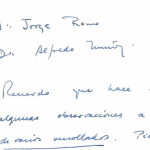 : Jorge Romo
Dr. Alfredo Muñoz.
Recuerdo que hace
algunas observaciones a
de varios enrollados.